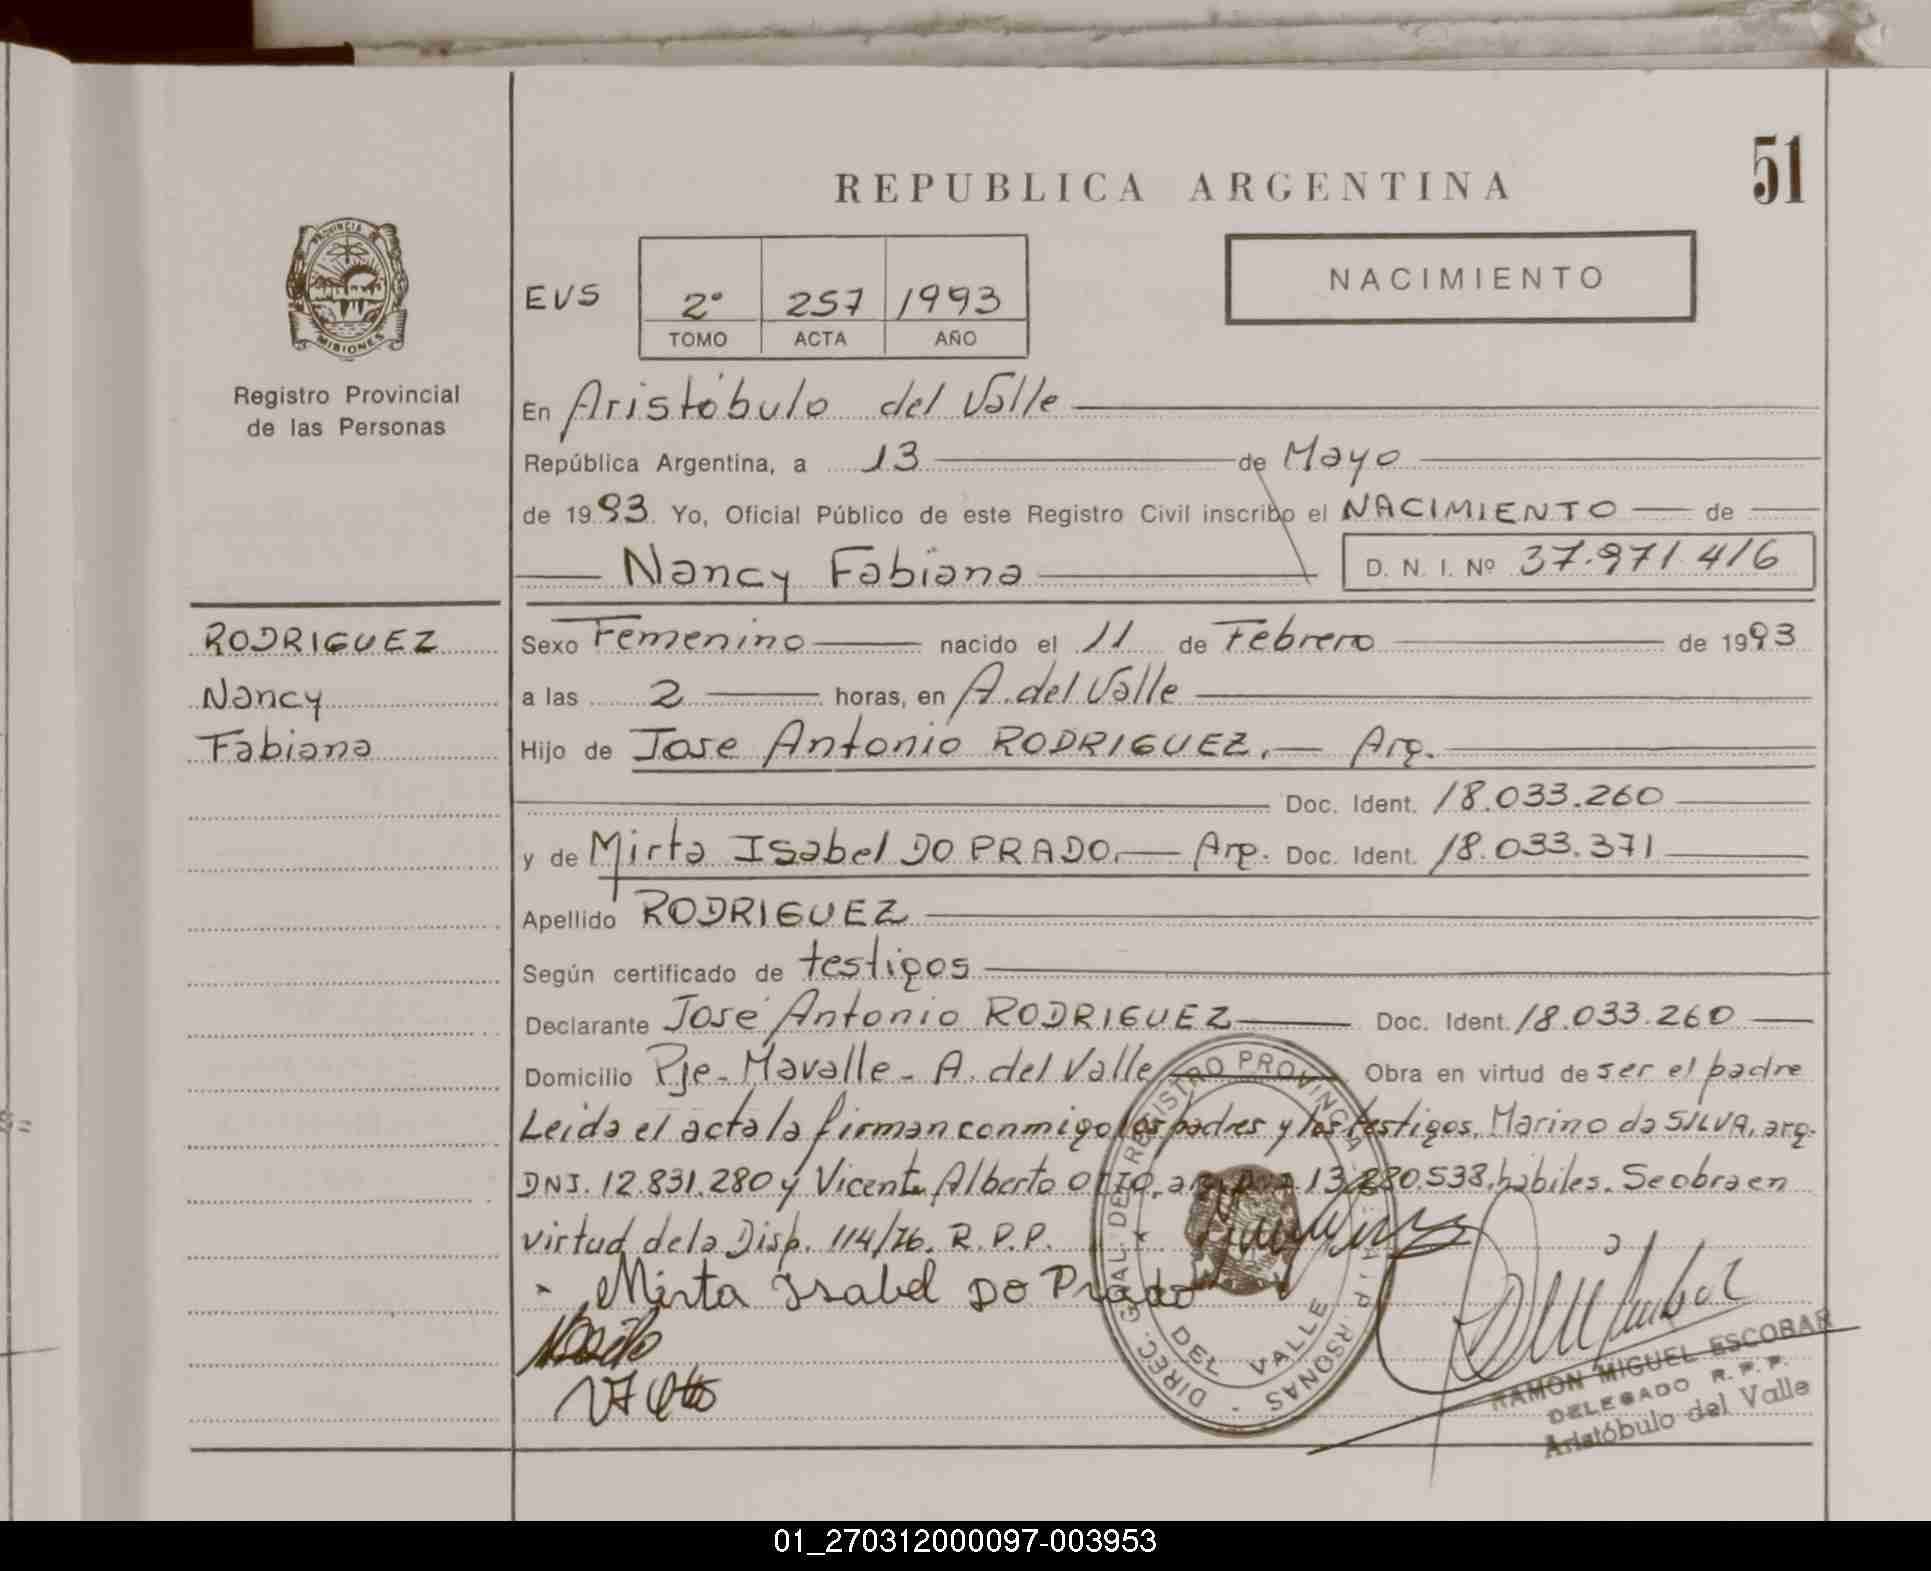 51
REPUBLICA ARGENTINA
PROVINCIA DE
MISIONES
Registro Provincial
de las Personas
EVS
2° 257 1993
TOMO ACTA AÑO
NACIMIENTO
En Aristóbulo del Valle
República Argentina, a 13 de Mayo
de 1993. Yo, Oficial Público de este Registro Civil inscribo el NACIMIENTO de
Nancy Fabiana D. N. I. Nº 37.971.416
RODRIGUEZ
Nancy
Fabiana
Sexo Femenino nacido el 11 de Febrero de 1993
a las 2 horas, en A. del Valle
Hijo de Jose Antonio RODRIGUEZ. Arg.
Doc. Ident. 18.033.260
y de Mirta Isabel DO PRADO. Arg. Doc. Ident. 18.033.371
Apellido RODRIGUEZ
Según certificado de testigos
Declarante José Antonio RODRIGUEZ Doc. Ident. 18.033.260
Domicilio Pje. Mavalle - A. del Valle Obra en virtud de ser el padre
Leida el acta la firman conmigo los padres y los testigos, Marino da SILVA, arg.
DNI. 12.831.280 y Vicente Alberto OTTO, 538, habiles. Se obra en
virtud de la Disp. 114/76. R.P.P.
Mirta Isabel DO Prado
DIREC. GRAL. DEL REGISTRO PROVINCIAL
DEL VALLE
RAMON MIGUEL ESCOBAR
DELEGADO R. P. P.
Aristóbulo del Valle
01_270312000097-003953